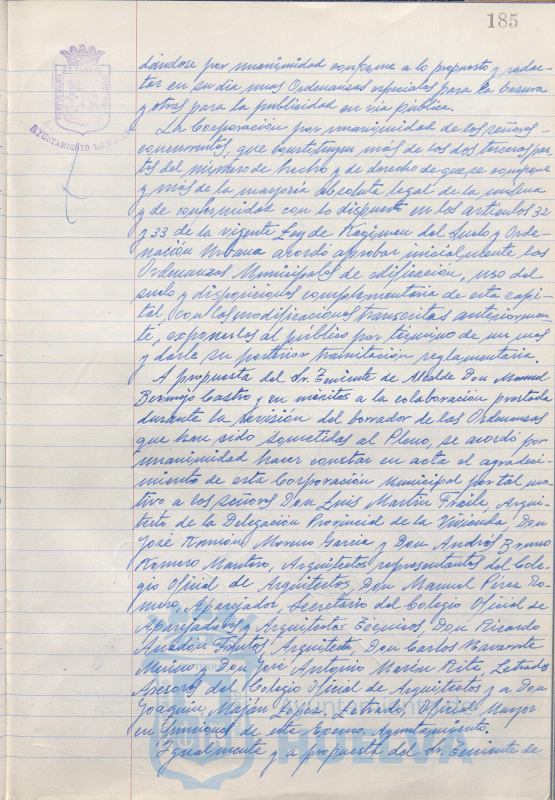 185
AYUNTAMIENTO DE HUELVA
dándose por unanimidad conforme a lo propuesto y redac-
tar en su día unas Ordenanzas especiales para la basura
y otras para la publicidad en vía pública.
La Corporación por unanimidad de los señores
concurrentes, que constituyen más de los dos terceras par-
tes del número de hecho y de derecho de que se compone
y más de la mayoría absoluta legal de la misma
y de conformidad con lo dispuesto en los artículos 32
y 33 de la vigente Ley de Régimen del Suelo y Orde-
nación Urbana acordó aprobar inicialmente las
Ordenanzas Municipales de edificación, uso del
suelo y disposiciones complementaria de esta capi-
tal, con las modificaciones transcritas anteriormen-
te, exponerlas al público por término de un mes
y darle su posterior tramitación reglamentaria.
A propuesta del Sr. Teniente de Alcalde Don Manuel
Bermejo Castro y en méritos a la colaboración prestada
durante la revisión del borrador de las Ordenanzas
que han sido sometidas al Pleno, se acordó por
unanimidad hacer constar en acta el agradeci-
miento de esta Corporación Municipal por tal mo-
tivo a los señores Don Luis Martín Fraile, Arqui-
tecto de la Delegación Provincial de la Vivienda, Don
José Ramón Moreno García y Don Andrés Bruno
Romero Mantero, Arquitectos representantes del Cole-
gio Oficial de Arquitectos, Don Manuel Pérez Ro-
mero, Aparejador, Secretario del Colegio Oficial de
Aparejadores y Arquitectos Técnicos, Don Ricardo
Anadón Frutos, Arquitecto, Don Carlos Navarrete
Merino y Don José Antonio Marín Rite, Letrados
Asesores del Colegio Oficial de Arquitectos y a Don
Joaquín López, Letrado, Oficial Mayor
en funciones de este Excmo. Ayuntamiento.
Igualmente y a propuesta del Sr. Teniente de
Ayuntamiento de
HUELVA